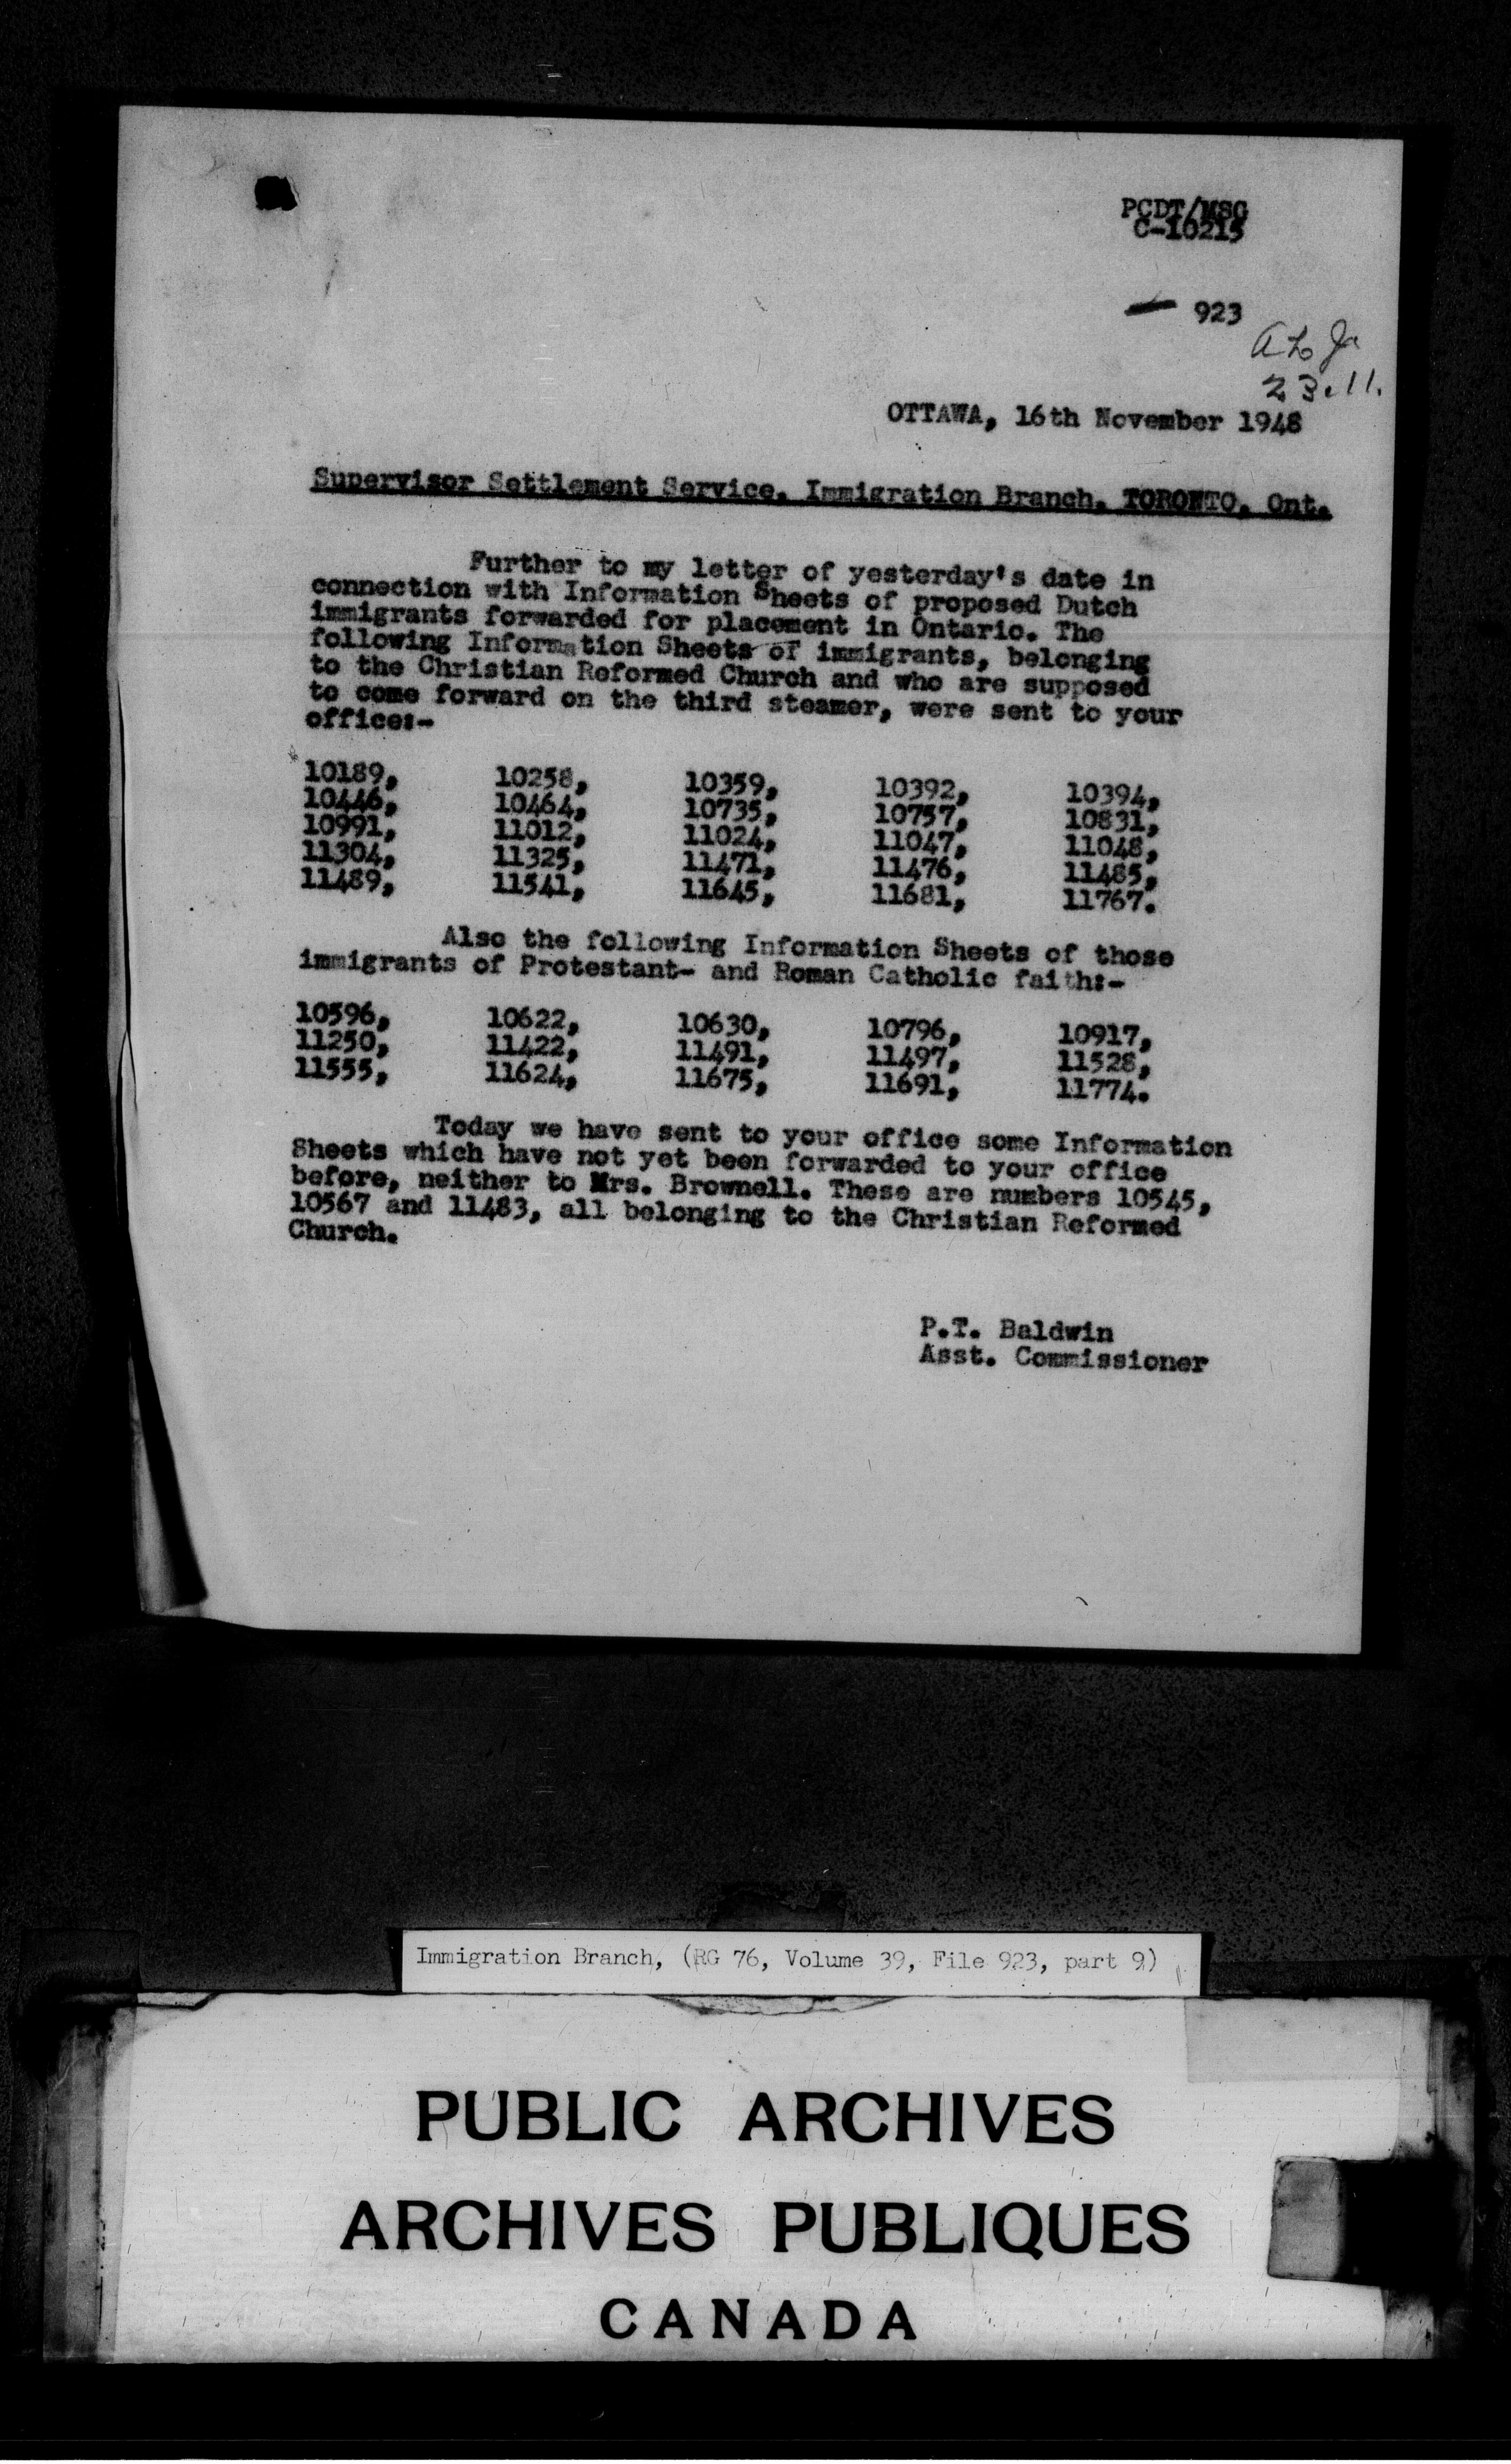 PCDT/MSG
C-10215
923
23.11.
OTTAWA, 16th November 1948
Supervisor Settlement Service, Immigration Branch, TORONTO, Ont.
Further to my letter of yesterday's date in
connection with Information Sheets of proposed Dutch
immigrants forwarded for placement in Ontario. The
following Information Sheets of immigrants, belonging
to the Christian Reformed Church and who are supposed
to come forward on the third steamer, were sent to your
office:-
10189, 10258, 10359, 10392, 10394,
10446, 10464, 10735, 10757, 10831,
10991, 11012, 11024, 11047, 11048,
11304, 11325, 11471, 11476, 11485,
11489, 11541, 11645, 11681, 11767.
Also the following Information Sheets of those
immigrants of Protestant- and Roman Catholic faith:-
10596, 10622, 10630, 10796, 10917,
11250, 11422, 11491, 11497, 11528,
11555, 11624, 11675, 11691, 11774.
Today we have sent to your office some Information
Sheets which have not yet been forwarded to your office
before, neither to Mrs. Brownell. These are numbers 10545,
10567 and 11483, all belonging to the Christian Reformed
Church.
P.T. Baldwin
Asst. Commissioner
Immigration Branch, (RG 76, Volume 39, File 923, part 9)
PUBLIC ARCHIVES
ARCHIVES PUBLIQUES
CANADA